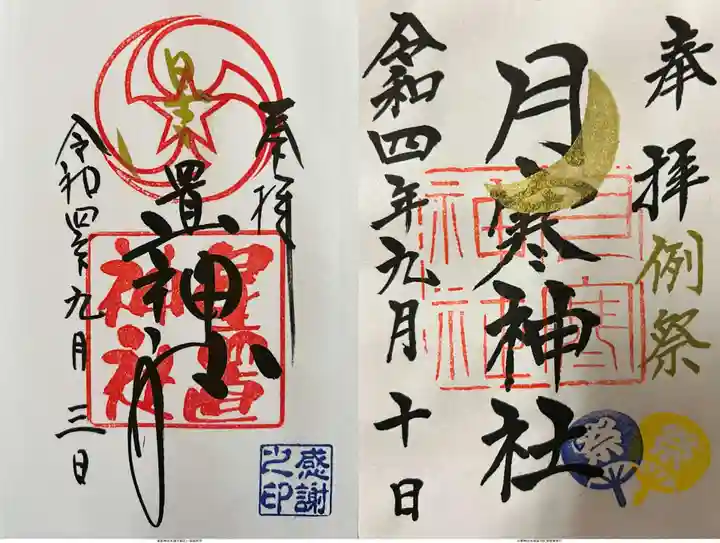 奉拝
置神社
令和四年九月三日
星置
神社
感謝
之印
奉拝
例祭
月寒神社
令和四年九月十日
月寒
神社
祭